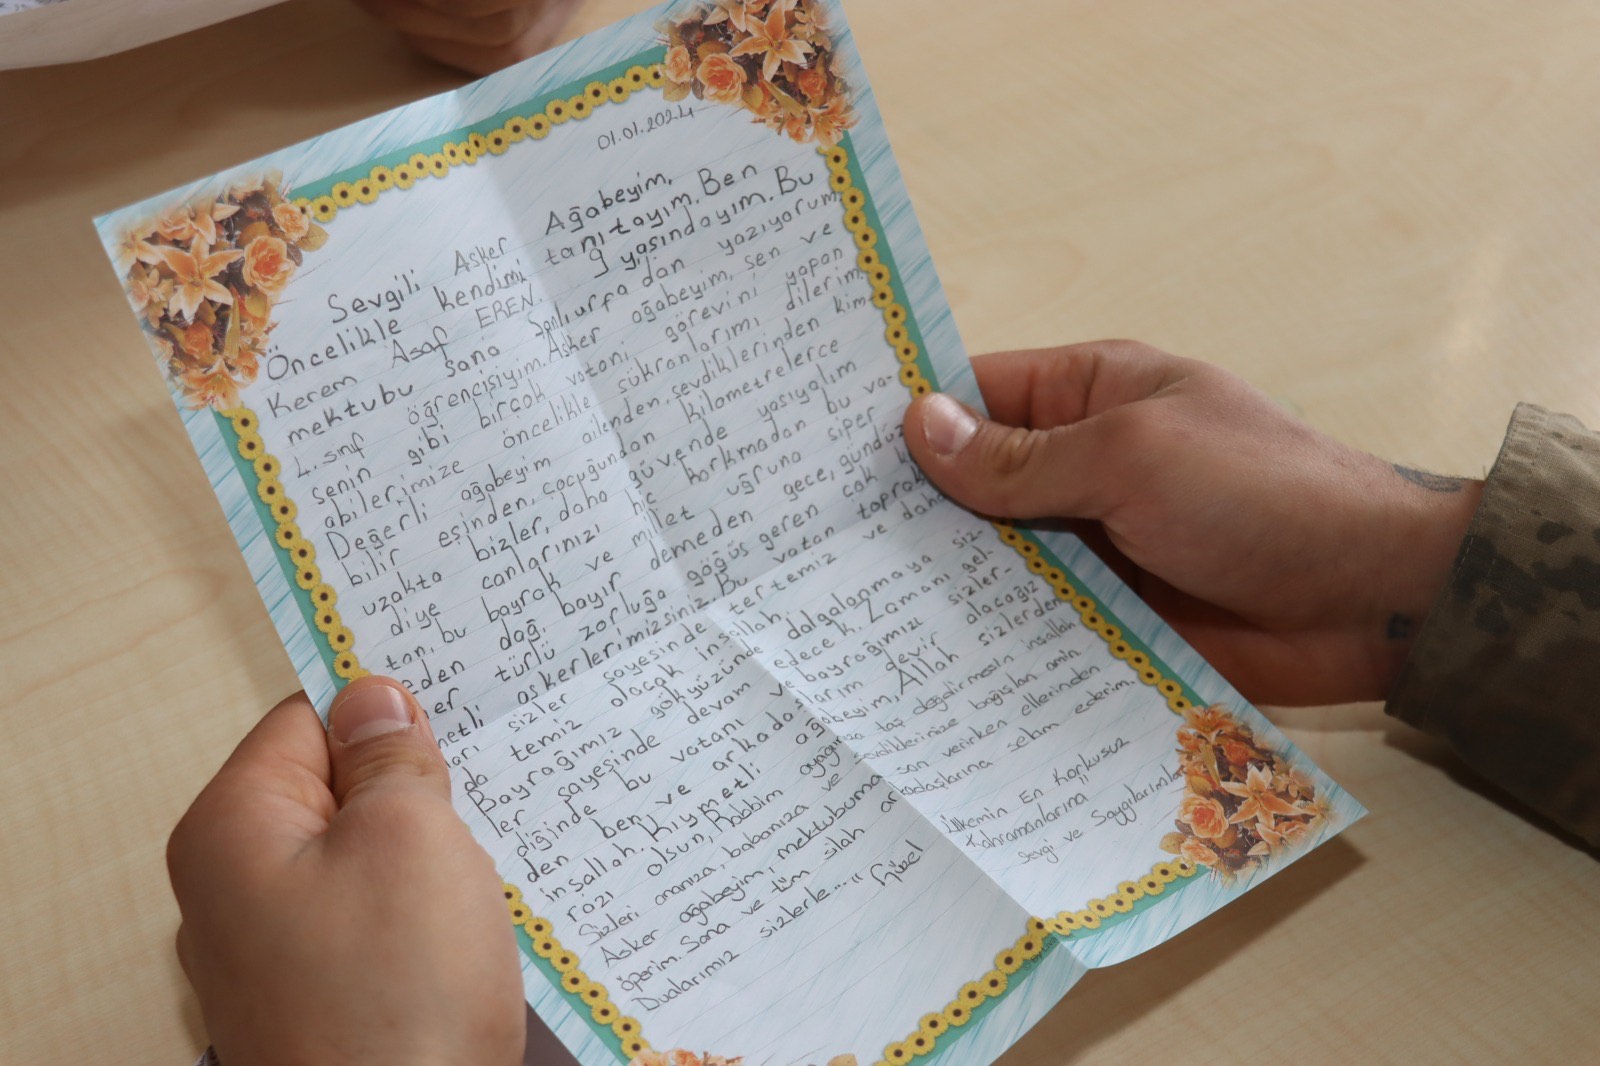 01.01.2024
Sevgili Asker Ağabeyim,
Öncelikle kendimi tanıtayım. Ben
Kerem Asaf EREN. 9 yaşındayım. Bu
mektubu sana Şanlıurfa dan yazıyorum
4. sınıf öğrencisiyim. Asker ağabeyim, sen ve
senin gibi birçok vatani görevini yapan
abilerimize öncelikle şükranlarımı dilerim.
Değerli ağabeyim ailenden, sevdiklerinden kim-
bilir eşinden, çocuğundan kilometrelerce
uzakta bizler, daha güvende yaşıyalım
diye canlarınızı hiç korkmadan bu va-
tan, bu bayrak ve millet uğruna siper
eden dağ, bayır demeden gece, gündüz
her türlü zorluğa göğüs geren çok
metli askerlerimizsiniz. Bu vatan toprak
ları sizler sayesinde tertemiz ve daha
da temiz olacak inşallah.
Bayrağımız gökyüzünde dalgalanmaya siz-
ler sayesinde devam edecek. Zamanı gel-
diğinde bu vatanı ve bayrağımızı sizler-
den ben ve arkadaşlarım devir alacağız
inşallah. Kıymetli ağabeyim, Allah sizlerden
razı olsun, Rabbim ayağınıza taş değdirmesin inşallah
Sizleri ananıza, babanıza ve sevdiklerinize bağışlan amin
Asker ağabeyim, mektubuma son verirken ellerinden
öperim. Sana ve tüm silah arkadaşlarına selam ederim.
Dualarımız sizlerle...
" Güzel Ülkemin En Korkusuz
Kahramanlarına "
Sevgi ve Saygılarımla